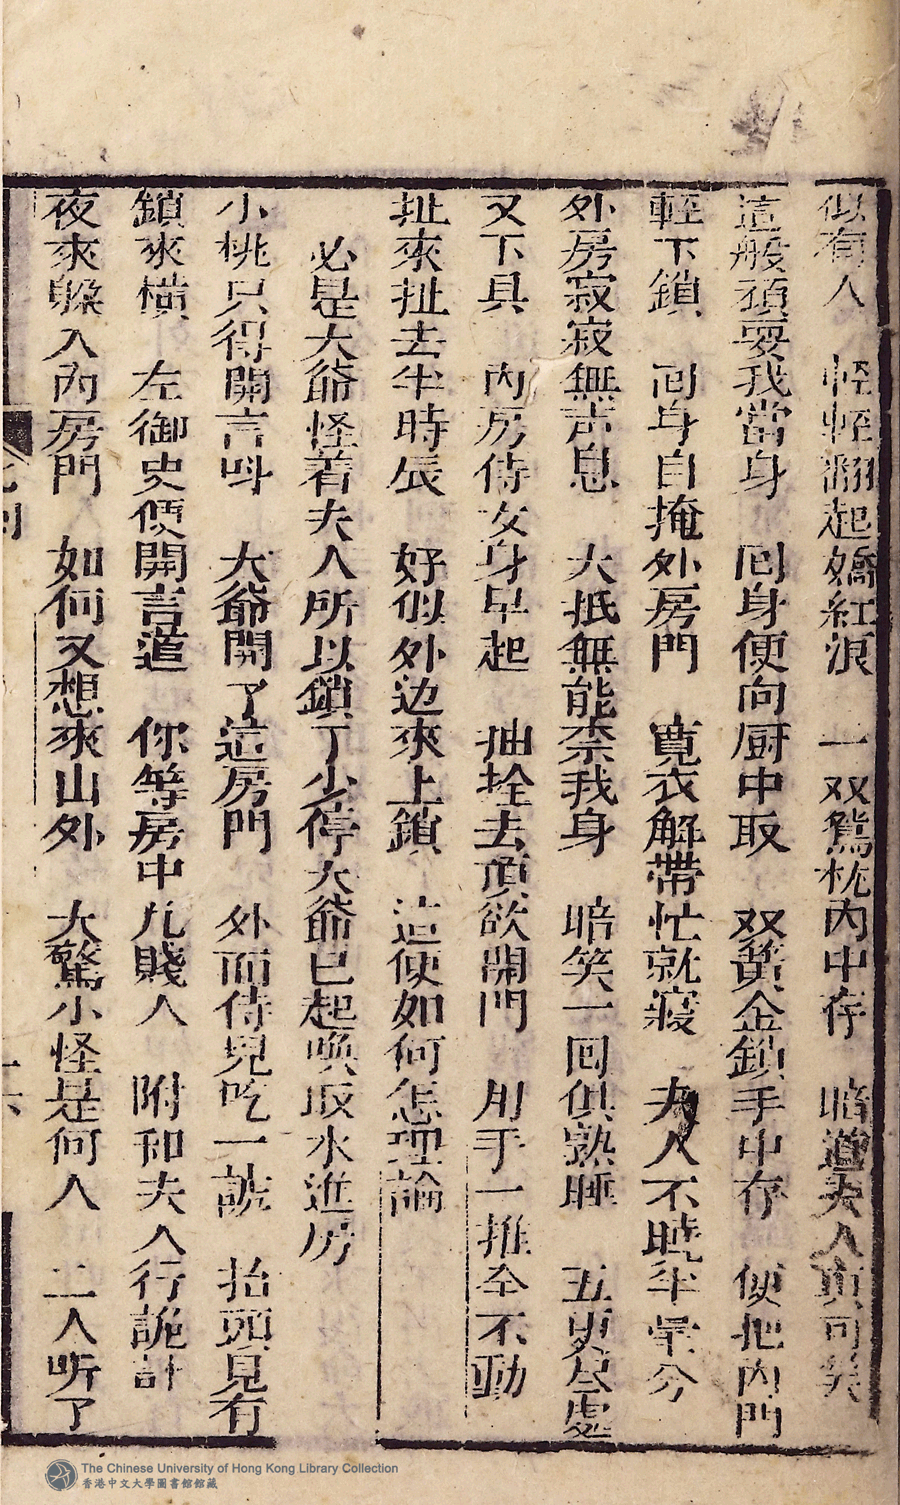 似有人　輕輕翻起嬌紅浪　一双鴛枕內中存　暗道夫人真可笑
這般頑耍我當身　囘身便向厨中取　双簧金鎖手中存　便把內門
輕下鎖　囘身自掩外房門　寬衣解帶忙就寢　夫人不曉半毫分
外房寂寂無声息　大抵無能柰我身　暗笑一囘俱熟睡　五更尽處
又下具　內房侍女身早起　抽拴去頂欲開門　用手一推全不動
扯來扯去半時辰　好似外边來上鎖　這便如何怎理論
必是大爺怪着夫人所以鎖了少停大爺已起喚取水進房
小桃只得開言呌　大爺開了這房門　外面侍兒吃一諕　抬頭見有
鎖來橫　左御史便開言道　你等房中九賤人　附和夫人行詭計
夜來躱入內房門　如何又想來山外　大驚小怪是何人　二人听了
The Chinese University of Hong Kong Library Collection
香港中文大學圖書館館藏